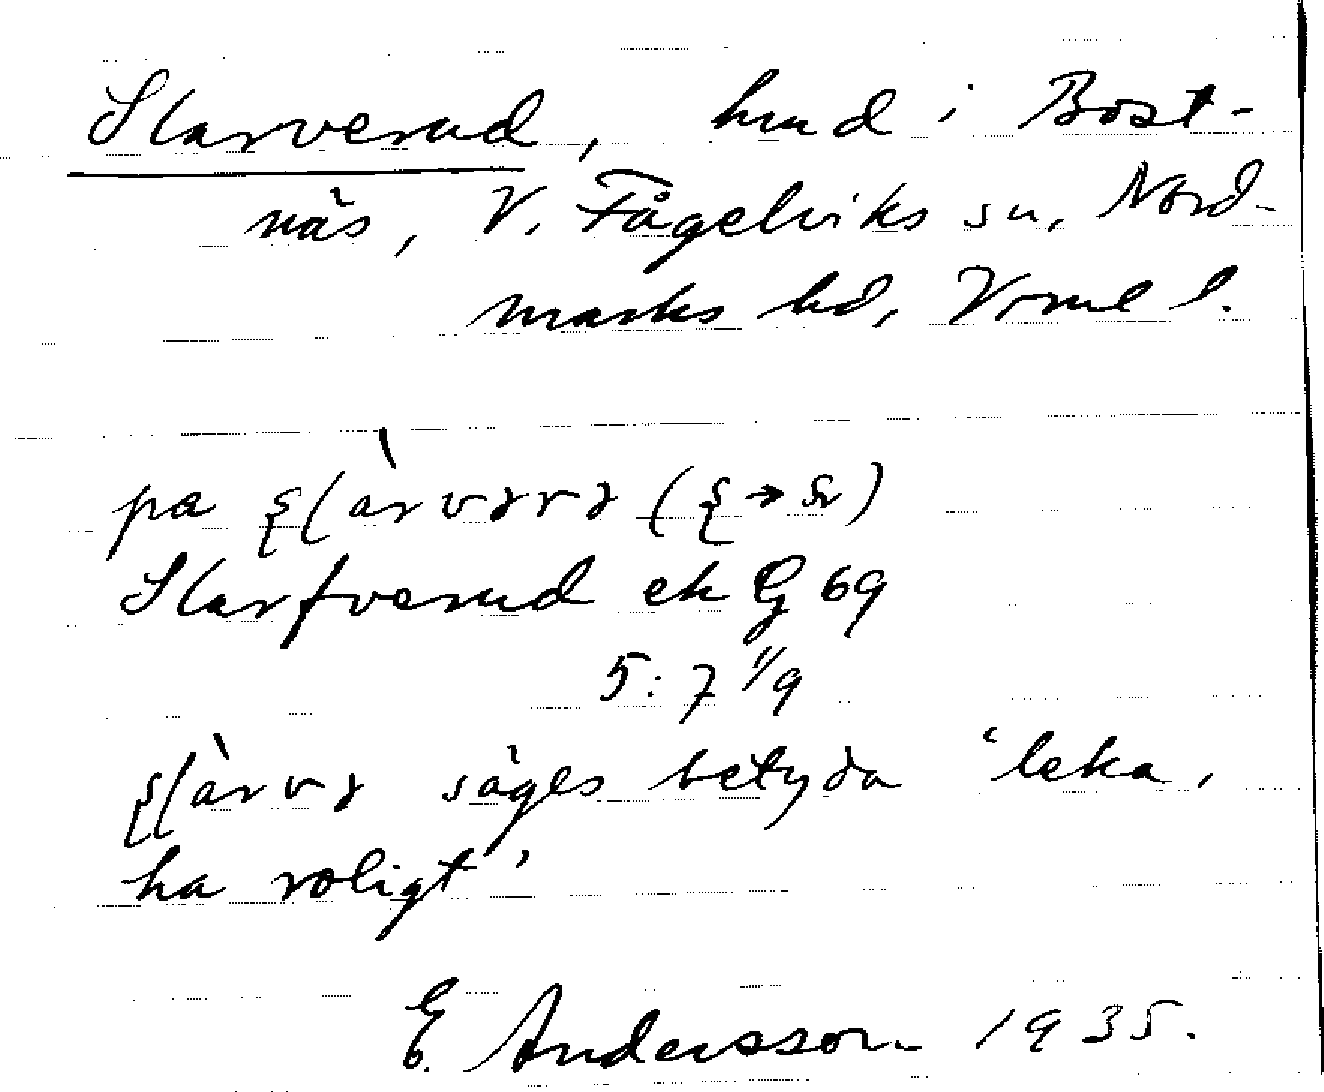 Slarverud, hmd i Bost-
näs, V. Fågelviks sn, Nord-
marks hd, Vrml l.
pa
Slarfverud ek G 69
5:7 11/9
säges betyda 'leka,
ha roligt'
E. Andersson 1935.